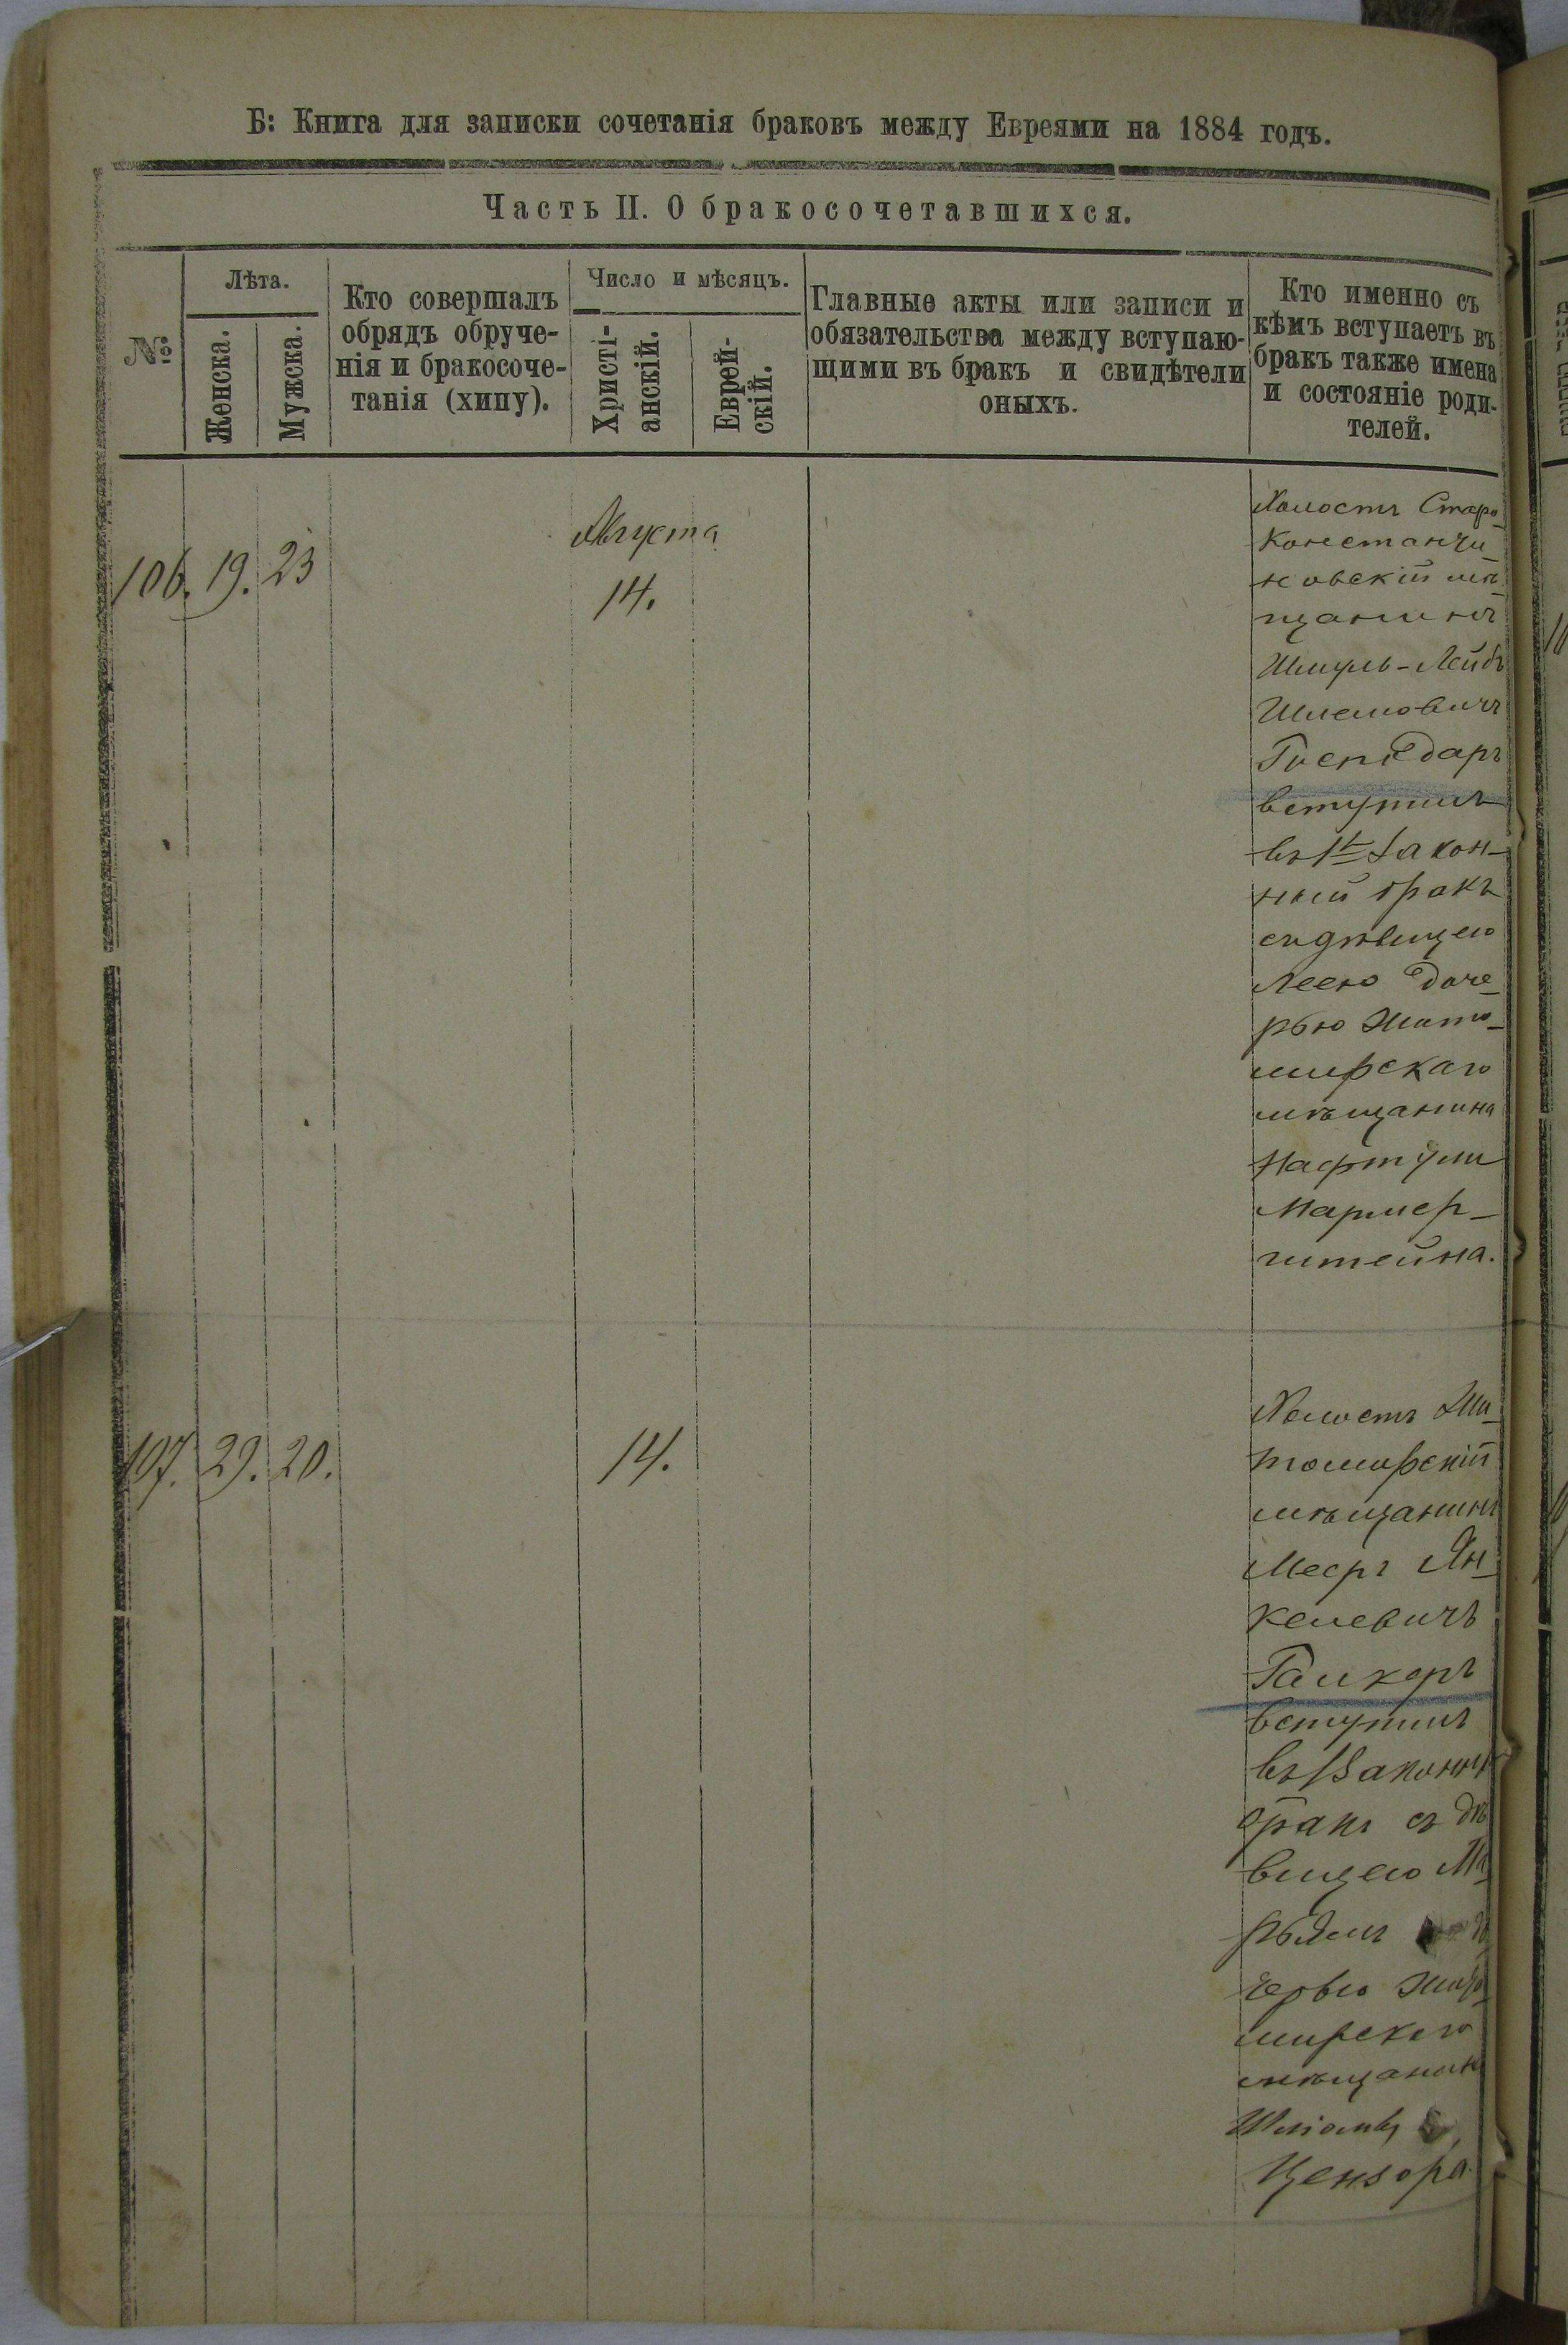 Б: Книга для записки сочетанія браковъ между Евреями на 1884 годъ.
Часть II. О бракосочетавшихся.
№
Лѣта.
Женска.
Мужска.
Кто совершалъ
обрядъ обруче-
нія и бракосоче-
танія (хипу).
Число и мѣсяцъ.
Христі-
анскій.
Еврей-
скій.
Главные акты или записи и
обязательства между вступаю-
щими въ бракъ и свидѣтели
оныхъ.
Кто именно съ
кѣмъ вступаетъ въ
бракъ также имена
и состояніе роди-
телей.
106. 19. 23
Августа
14.
Холостъ Старо-
Константи-
новскій мѣ-
щанинъ
Шмуль-Лейбъ
Шлемовичъ
Господаръ
вступилъ
въ 1й закон-
ный бракъ
съ дѣвицею
Леею доче-
рью Жито-
мирскаго
мѣщанина
Нафтули
Мармер-
штейна.
107. 29. 20.
14.
Холостъ Жи-
томирскій
мѣщанинъ
Мееръ Ян-
келевичъ
вступилъ
въ 1 законны
бракъ съ дѣ
вицею Ма-
рьямъ до
черью Жито-
мирскаго
мѣщанина
Цензора.